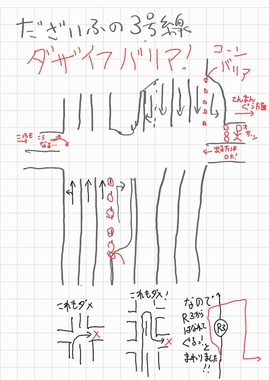 だざいふの3号線
ダザイフバリア!
コーン
バリア
てんまんぐう方面
出る方はOK!
これもダメ
これもダメ!
なので
R3から
はなれて
ぐるっと
まわりました!!
R3